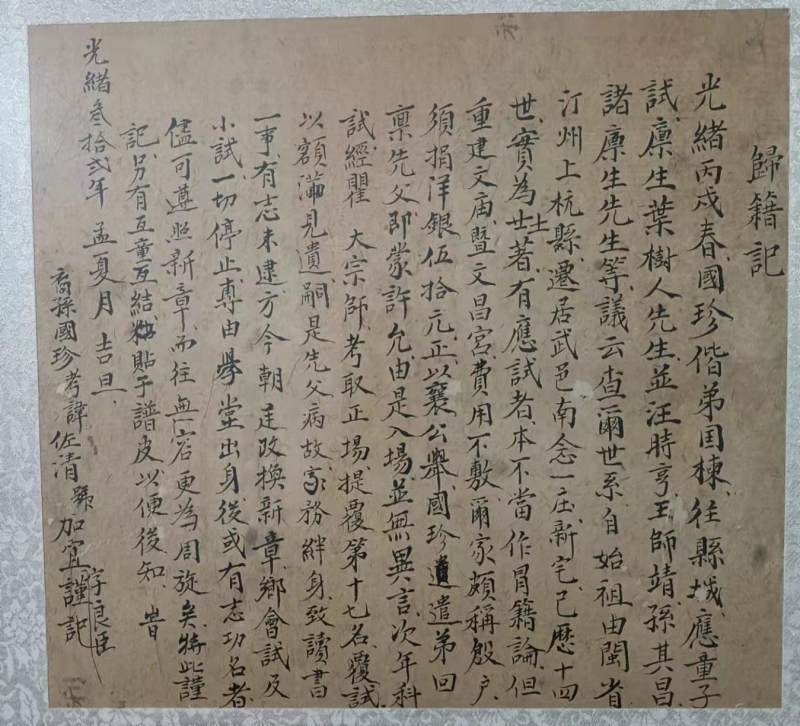 歸籍記
光緒丙戌春國珍偕弟国棟往縣城應童子
試廪生葉樹人先生並汪時亨王師靖孫其昌
諸廪生先生等議云查爾世系自始祖由閩省
汀州上杭縣遷居武邑南念一庄新宅已歷十四
世實為土著有應試者本不當作冒籍論但
重建文庙暨文昌宮費用不敷爾家頗稱殷户
須捐洋銀伍拾元正以襄公舉國珍遣弟回
禀先父即蒙許允由是入場並無異言次年科
試經瞿 大宗師考取正場提覆第十七名覆試
以額滿見遺嗣是先父病故家務絆身致讀書
一事有志未逮方今朝廷改換新章鄉會試及
小試一切停止專由學堂出身後或有志功名者
儘可遵照新章而往無容更為周旋矣特此謹
記另有互童互結粘貼于譜皮以便後知 旹
光緒叁拾弍年孟夏月吉旦
裔孫國珍考諱佐清號加宜字良臣謹記